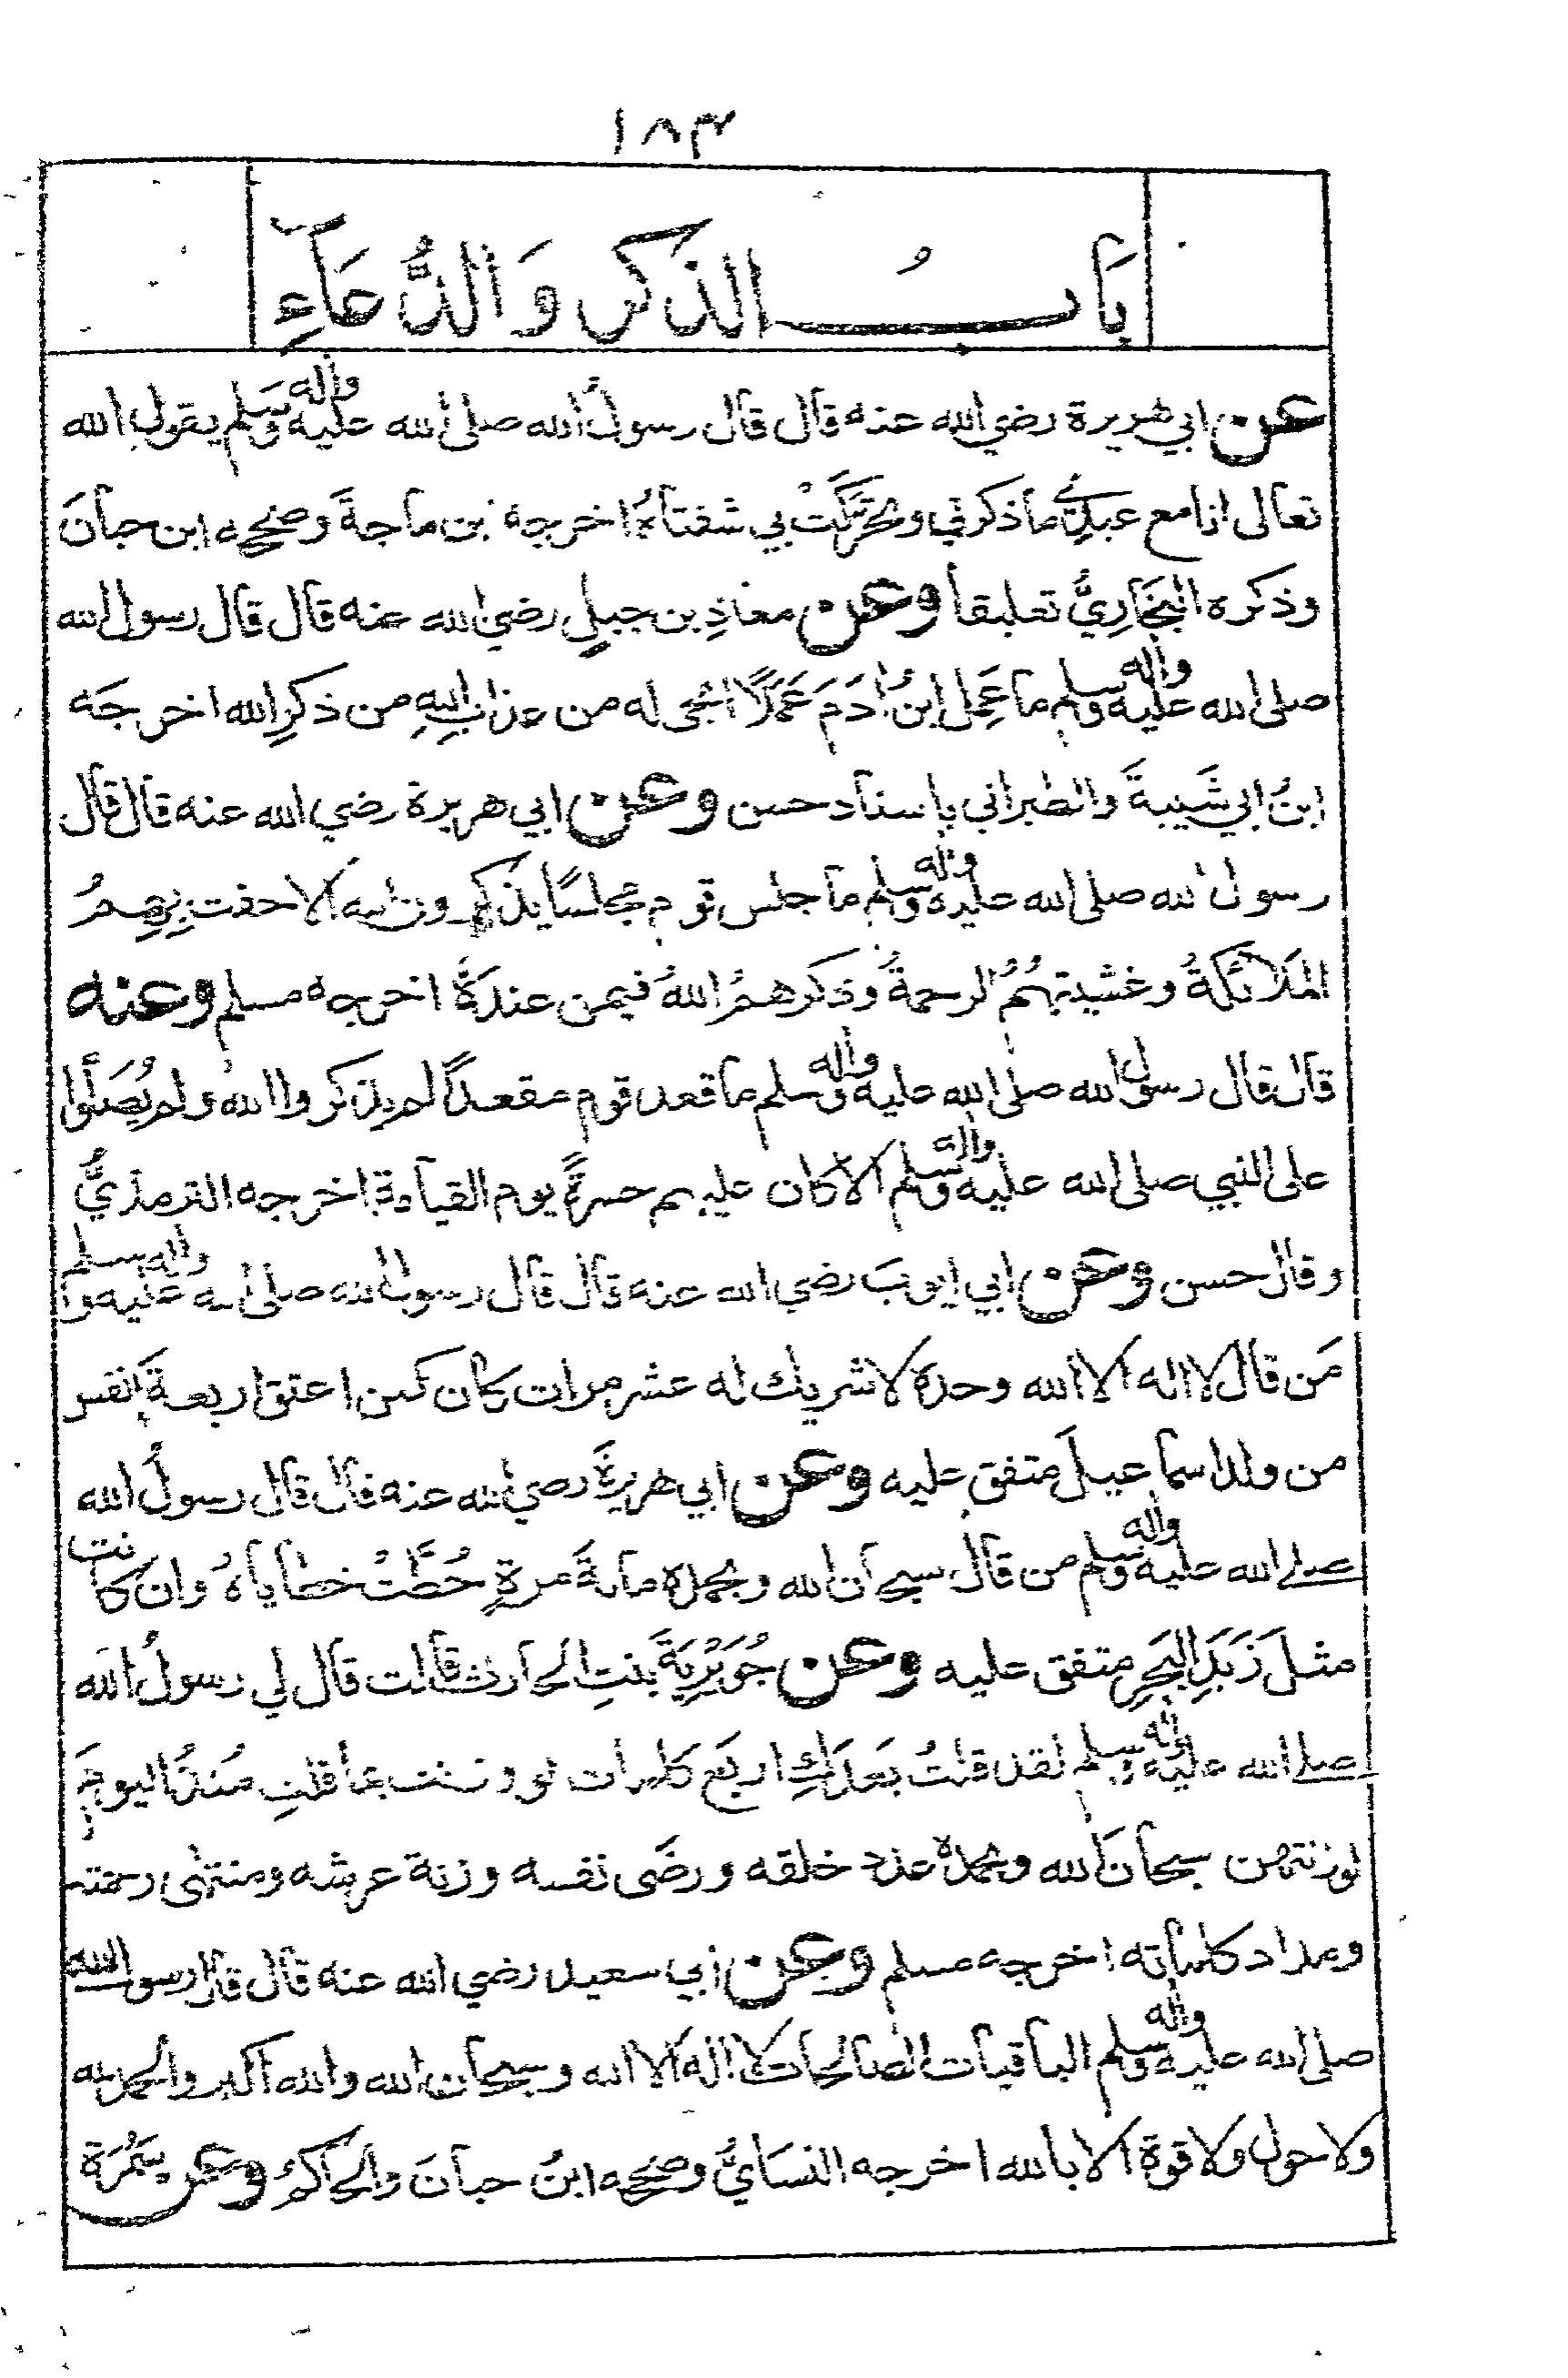 ١٨٣
بَابُ الذكر وَالدُّعَآءِ
عن ابي هريرة رضي الله عنه قال قال رسولُ الله صلى الله عليه واله وسلم يقول الله
تعالى انا مع عبدي ما ذكرني وتحرّكَتْ بي شفتاهُ اخرجه ابن ماجةَ وصححه ابن حبانَ
وذكره البخاريُّ تعليقاً وعن معاذِ بن جبلٍ رضي الله عنه قال قال رسول الله
صلى الله عليه واله وسلم ما عَمِل ابنُ اٰدَمَ عَمَلًا انجى له من عذابِ اللهِ من ذكرِ الله اخرجَه
ابنُ ابي شَيبةَ والطبراني باسناد حسن وعن ابي هريرة رضي الله عنه قال قال
رسول الله صلى الله عليه واله وسلم ما جلس قوم مجلسًا يذكرون الله الا حفت بِهِمُ
الملائكةُ وغشيتهُمُ الرحمةُ وذكرهمُ اللهُ فيمن عندهُ اخرجه مسلم وعنه
قال قال رسول الله صلى الله عليه واله وسلم ما قعد قوم مقعداً لم يذكروا الله ولم يُصَلُّوا
على النبي صلى الله عليه واله وسلم الا كان عليهم حسرةً يوم القيامة اخرجه الترمذيُّ
وقال حسن وعن ابي ايوبَ رضي الله عنه قال قال رسول الله صلى الله عليه واله وسلم
مَن قال لا اله الا الله وحده لا شريك له عشر مرات كان كمن اعتق اربعةَ انفس
من ولد اسماعيلَ متفق عليه وعن ابي هريرةَ رضي الله عنه قال قال رسولُ الله
صلى الله عليه واله وسلم من قال سبحان الله وبحمده مائةَ مرةٍ حُطَّتْ خطاياهُ وان كانت
مثلَ زَبَدِ البحرِ متفق عليه وعن جُوَيْرِيَةَ بنتِ الحارث قالت قال لي رسولُ الله
صلى الله عليه واله وسلم لقد قلتُ بعدَكِ اربَع كلمات لو وزنت بما قلتِ مُنذُ اليومَ
لوزنتهن سبحانَ الله وبحمده عدد خلقه ورضَى نفسه وزنة عرشه ومنتهى رحمته
ومداد كلماته اخرجه مسلم وعن ابي سعيد رضي الله عنه قال قال رسول الله
صلى الله عليه واله وسلم الباقيات الصالحات لا اله الا الله وسبحان الله والله اكبر والحمد لله
ولا حول ولا قوة الا بالله اخرجه النسايُّ وصححه ابنُ حبانَ والحاكمُ وعن سَمُرَة